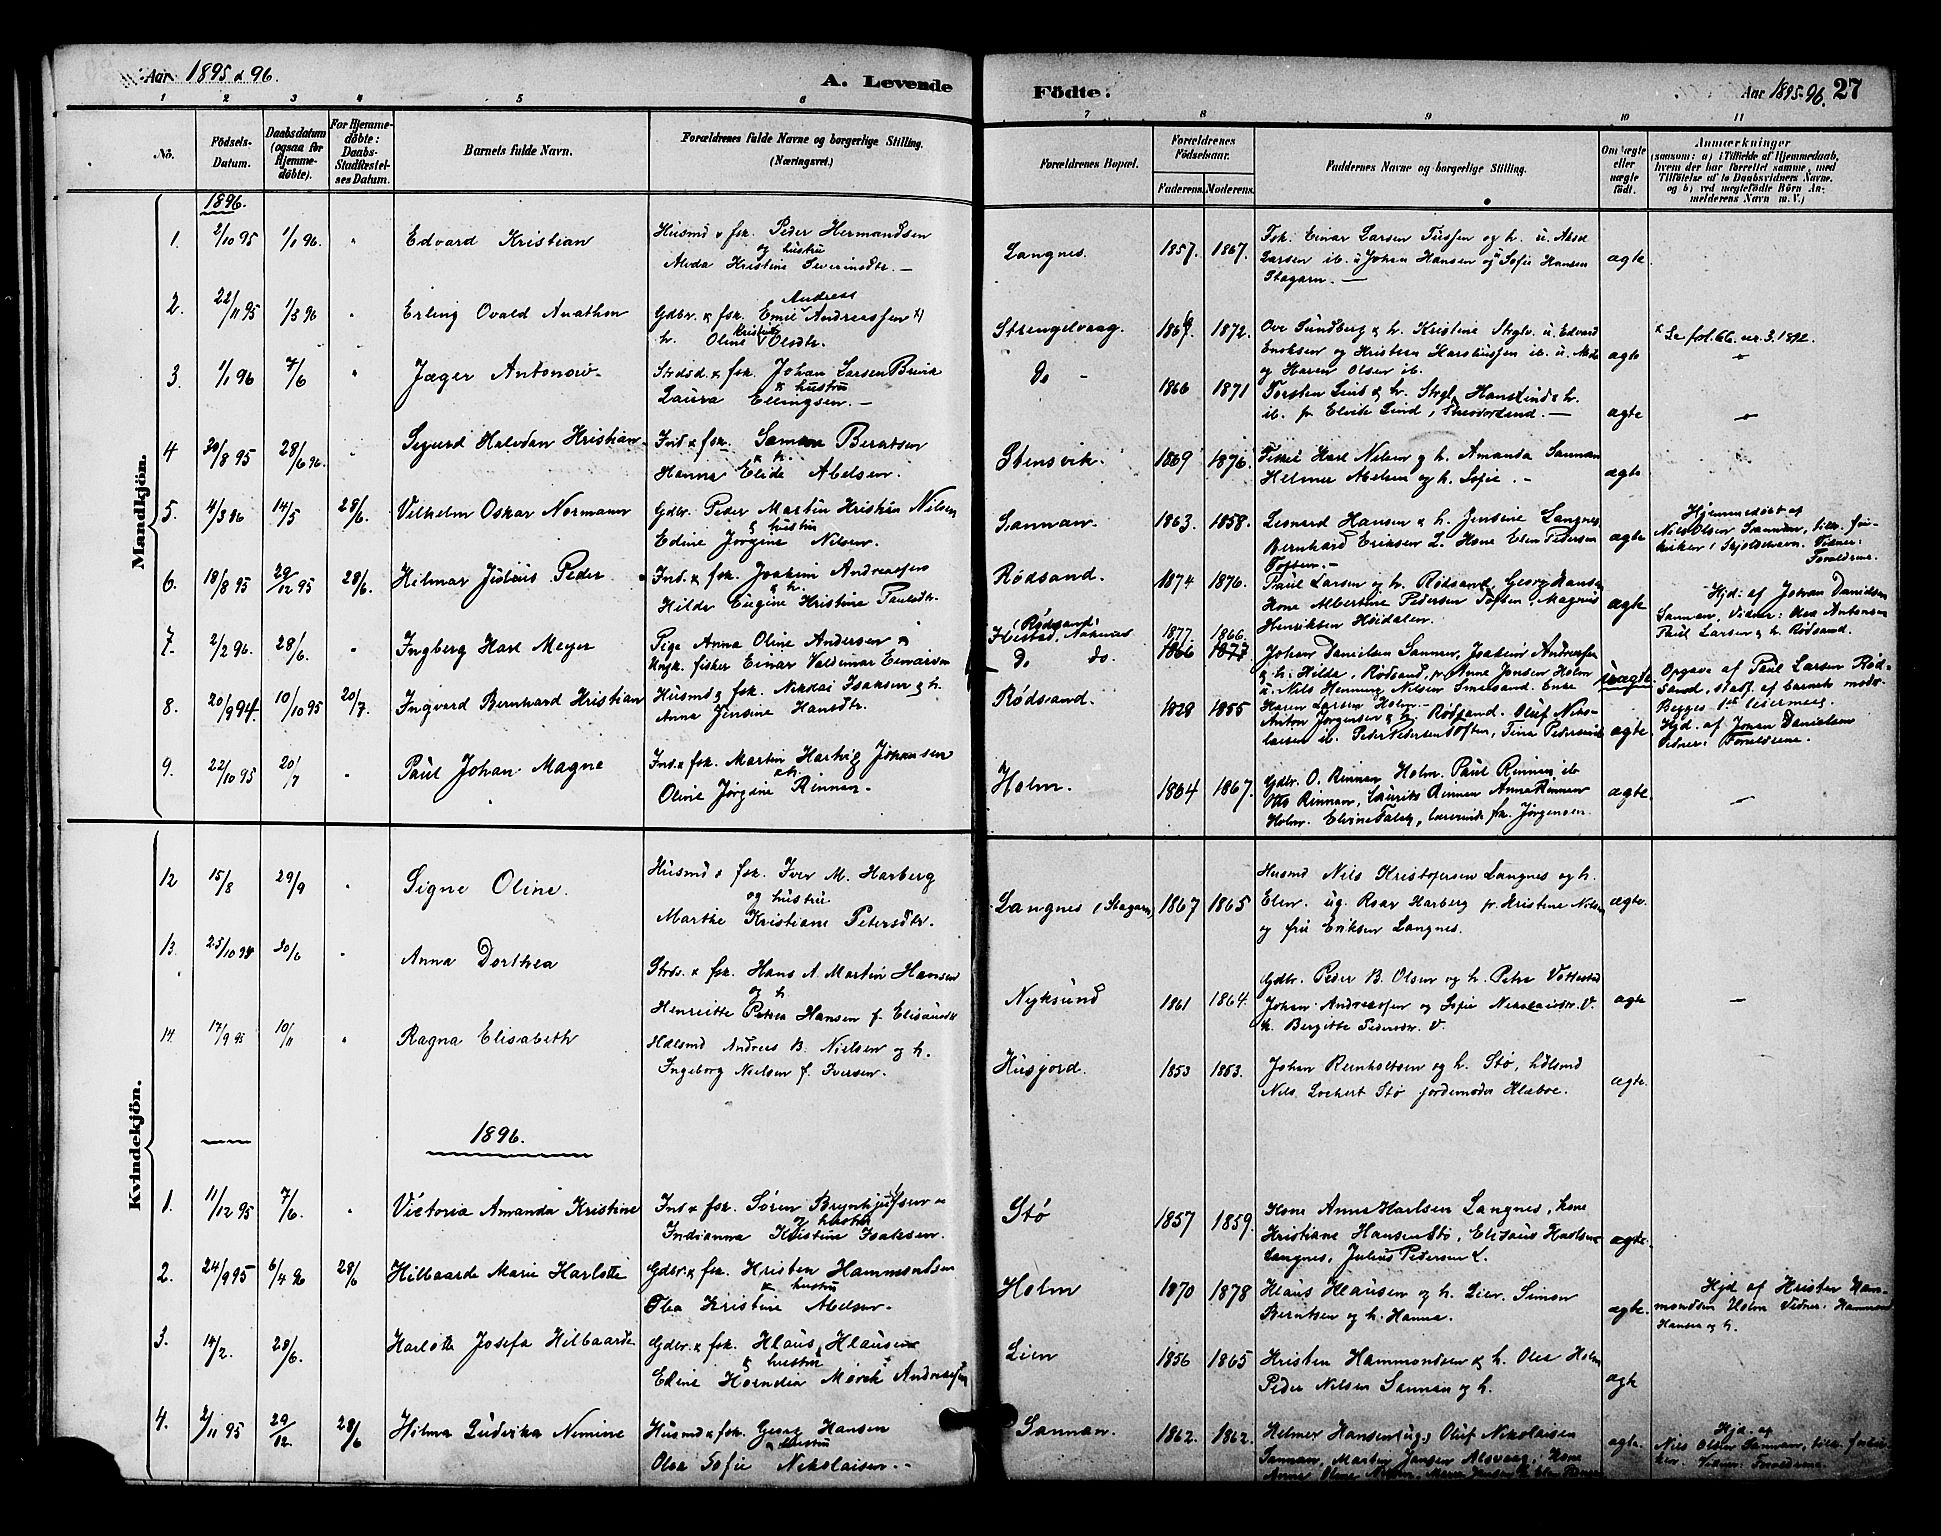 Aar 1895 & 96.
A. Levende
Födte:
Aar 1895-96. 27
1 2 3 4 5 6 7 8 9 10 11
No.
Födsels-
Datum.
Daabsdatum
(ogsaa for
Hjemme-
döbte).
For Hjemme-
döbte:
Daabs-
Stadfæstel-
ses Datum.
Barnets fulde Navn.
Forældrenes fulde Navne og borgerlige Stilling.
(Næringsvei.)
Forældrenes Bopæl.
Forældrenes
Födselsaar.
Faderens. Moderens.
Faddernes Navne og borgerlige Stilling.
Om ægte
eller
uægte
födt.
Anmærkninger
(saasom: a) i Tilfælde af Hjemmedaab,
hvem der har forrettet samme, med
Tilföielse af to Daabsvidners Navne.
og b) ved uægtefödte Börn An-
melderens Navn m. V.)
Mandkjön.
1896.
1. 2/10 95 1/1 96. " Edvard Kristian
Husmd & fsk. Peder Hermandsen
og hustru
Alvda Kristine Severinsdtr. —
Langnes. 1857. 1867.
Fsk. Einar Larsen Tussen og h. u. Aksel
Larsen ib. u Johan Hansen og Sofie Hansen
Stagarn. —
ægte
2. 22/11 95 1/3 96 " Erling Ovald Anathon
Andreas
Gdbr. & fsk. Emil Andreassen x)
h. Oline Kristine Olsdtr.
Strengelvaag. 1869. 1872.
Ove Sundberg & h. Kristine Stglv. u. Edvard
Enoksen og Kristian ib. u.
og Karen Olsen ib.
ægte
x Se fol. 66. nr. 3. 1892.
3. 1/1 96 7/6 " Jæger Antonow.
Strdsd. & fsk. Johan Larsen Buvik
& hustru
Laura Ellingsen. —
do - 1866 1871
Torsten Lind & h. Strgl. Hans Lind & h.
ib. pr Elvik Lind,
ægte
4 30/8 95 28/6 96. " Sigurd Halvdan Kristian.
Ind. & fsk. Saman Berntsen
& h.
Hanna Elide Abelsen.
Stensvik. 1869 1876.
Fisker Karl Nilsen og h. Amanda Sannan
Helmer Abelsen og h. Sofie. -
ægte
5. 4/3 96 14/5 28/6. Vilhelm Oskar Normann
Gdbr. Peder Martin Kristian Nilsen
& hustru
Edine Jørgine Nilsen.
Sannan. 1863. 1858.
Leonard Hansen & h. Jensine Langnes.
Bernhard Eriksen L. Kone Elen Pedersen
Toften.
ægte
Hjemmedøbt af
Nils Olsen Sannan, tilk.
Vidner:
Forældrene.
6. 18/8 95 29/12 95 28/6. Hilmar Julius Peder
Ind. & fsk. Joakim Andreassen
& h.
Hilda Eugine Kristine Paulsdtr.
Rødsand. 1874 1876.
Paul Larsen og h. Rødsand, Georg Hansen
Kone Albertine Pedersen Toften, Magnus
Henriksen Høidalen.
ægte
Hjd: af Johan Danielsen
Sannan, Vidner: Antonsen
Paul Larsen & h. Rødsand.
7. 2/2 96. 28/6. " Ingberg Karl Meyer
Pige Anna Oline Andersen &
Ungk. fisker Einar Valdemar Einarsen
(Rødsand)
do do. 1877. 1866.
1866 1877
Johan Danielsen Sannan, Joakim Andreassen
& h. Hilda, Rødsand, pr Anne Jonsen Holm
u. Nils Henning Nilsen Smelsand. Enke
Karen Larsen Holm. —
uægte.
Opgave af Paul Larsen Rød-
sand, stadf. af barnets moder.
Begges 1ste leiermaal.
8. 20/9 94. 10/10 95 20/7. Ingvard Bernhard Kristian
Husmd & fsk. Nikolai Isaksen & h.
Anna Jensine Hansdtr.
Rødsand. 1828 1855
Anton Jørgensen & h. Rødsand. Oluf Niko-
laisen ib. Peder Pedersen Toften, Tina Pedersen ib
ægte.
Hjd. af Johan Danielsen
Vidner: Forældrene.
9. 22/10 95 20/7 " Paul Johan Magne
Ind. & fsk. Martin Hartvig Johansen
& h.
Oline Jørgine Rinnan.
Holm. 1864 1867.
Gdbr. O. Rinnan, Holm. Paul Rinnan, ib
Otto Rinnan, Laurits Rinnan Anna Rinnan
Holm. Elvine Falck, lærerinde frk. Jørgensen.
ægte.
Kvindekjön.
12 15/8 29/9 " Signe Oline.
Husmd & fsk. Iver M. Harberg
og hustru
Marthe Kristiane Petersdtr.
Langnes (Stagarn) 1867 1865
Husmd Nils Kristofersen Langnes og h.
Elen. ug. Roar Harberg pr. Kristine Nilsen
og frie Eriksen Langnes.
ægte.
13. 25/10 94 30/6 " Anna Dorthea
Strds. & fsk. Hans A. Martin Hansen
og h
Henriette Petrea Hansen f.
Nyksund 1861 1864.
Gdbr. Peder B. Olsen og h. Petra Vottestad
Johan Andreassen og Sofie Nikolaisdtr. V.
h. Bergitte Pedersdtr. V.
ægte
14. 17/9 95 10/11 " Ragna Elisabeth
Andreas B. Nielsen og h.
Ingeborg Nielsen f. Iversen.
Husjord. 1853 1853.
Johan Bernholtsen og h. Stø,
Nils Lockert Stø jordemoder Klæboe.
ægte.
1896.
1. 11/12 95 7/6. " Victoria Amanda Kristine
Ind & fsk. Søren Brynhjulfsen &
og hustru
Indianna Kristine Isaksen.
Stø 1857 1859.
Kone Anna Karlsen Langnes, kone
Kristiane Hansen Stø, Elisæus Karlsen
Langnes, Julius Pedersen L.
ægte.
2. 24/9 95 6/4 96 28/6 Hilbaarde Marie Karlotte
Gdbr. & fsk. Kristen Hammondsen
& hustru
Olea Kristine Abelsen.
Holm 1870 1878
Klaus Klausen og h. Lien. Simon
Berntsen og h. Hanna.
ægte.
Hjd af Kristen Ham-
mondsen Holm Vidner: Hammond
Hansen og h.
3. 14/2. 28/6. Karlotte Josefa Hilbaarde
Gdbr. & fsk. Klaus Klausen
& hustru
Edine Kornelia Mørch Andreassen
Lien 1856 1865
Kristen Hammondsen & h. Olea Holm
Peder Nilsen Sannan og h.
ægte
4. 2/11 95 29/12 28/6 Hilma Ludvika Nimine
Husmd & fsk. Georg Hansen
& hustru
Olea Sofie Nikolaisen. -
Sannan. 1862. 1862.
Helmer Hansen (ug.) Oluf Nikolaisen
Sannan, Martin Jansen Alsvaag, Kone
ægte.
Hjd. af
Nils Olsen Sannan, tilk.
Vidner: Forældrene.